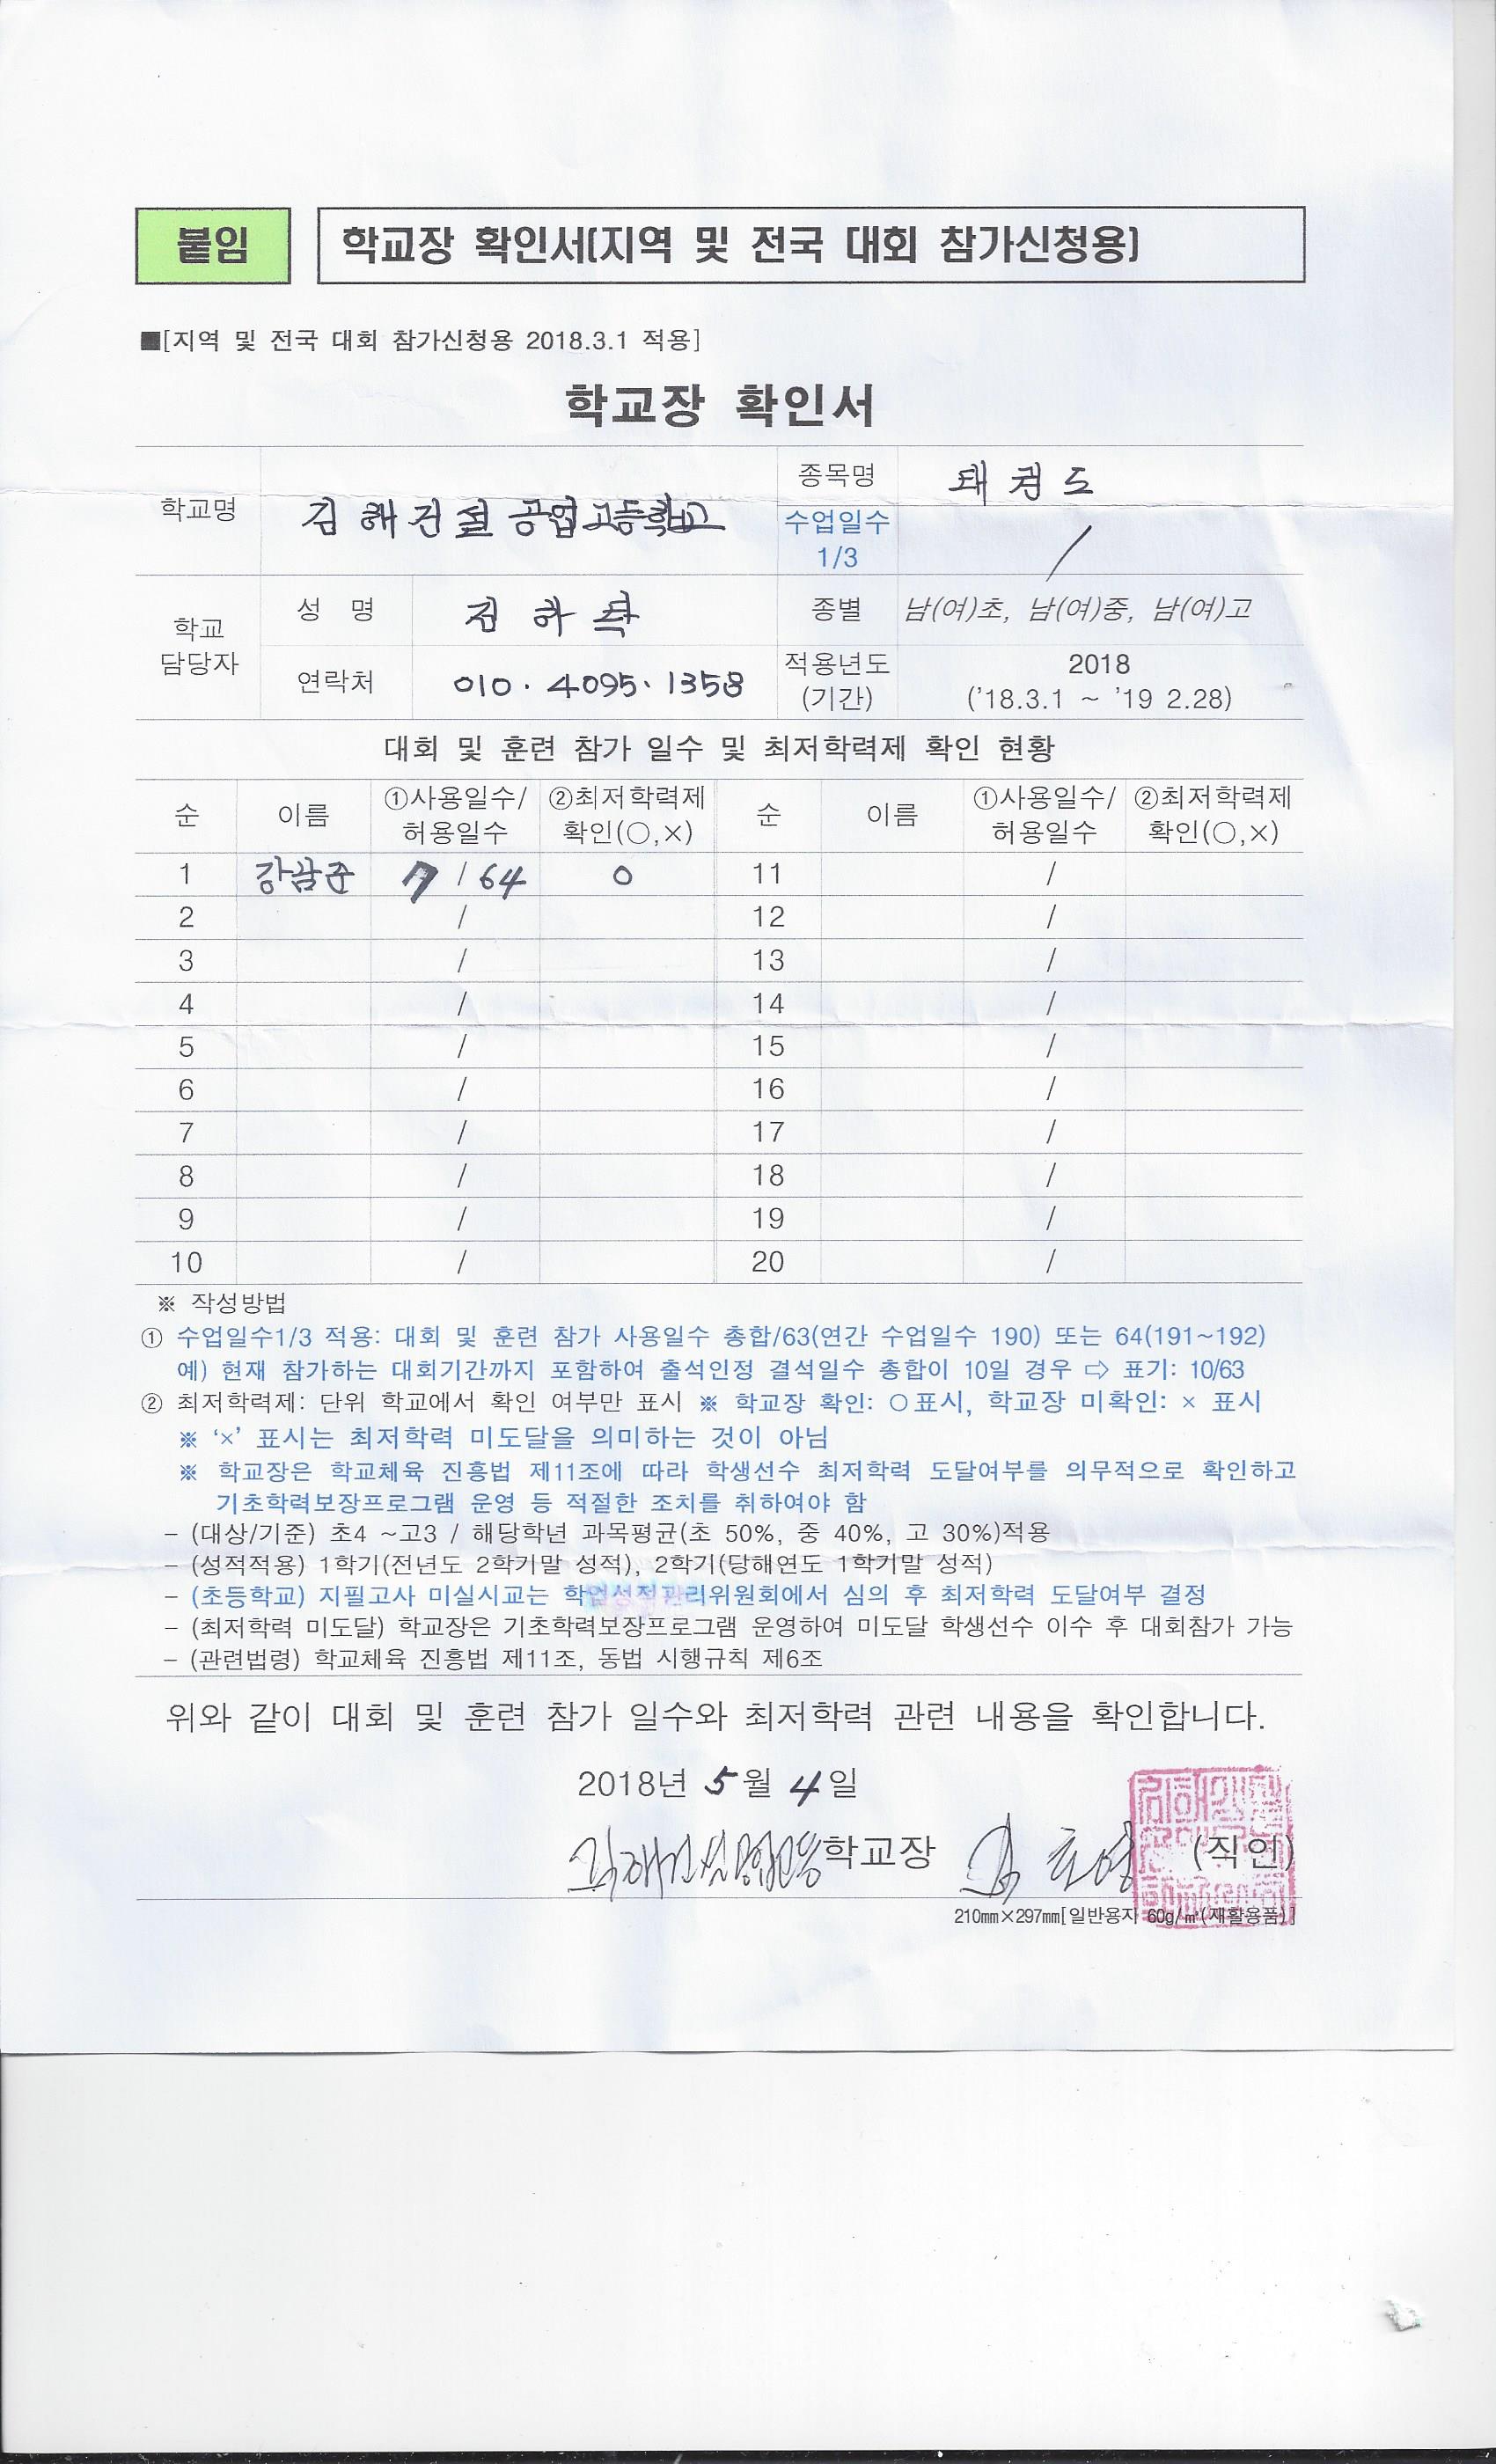 붙임
학교장 확인서(지역 및 전국 대회 참가신청용)
■[지역 및 전국 대회 참가신청용 2018.3.1 적용]
학교장 확인서
학교명 김해건설공업고등학교 종목명 태권도
수업일수 1/3 /
학교 담당자 성 명 하 종별 남(여)초, 남(여)중, 남(여)고
연락처 010. 4095. 1358 적용년도 (기간) 2018 ('18.3.1 ~ '19 2.28)
대회 및 훈련 참가 일수 및 최저학력제 확인 현황
순 이름 ①사용일수/허용일수 ②최저학력제 확인(○,×) 순 이름 ①사용일수/허용일수 ②최저학력제 확인(○,×)
1 강남준 7 / 64 O 11 /
2 / 12 /
3 / 13 /
4 / 14 /
5 / 15 /
6 / 16 /
7 / 17 /
8 / 18 /
9 / 19 /
10 / 20 /
※ 작성방법
① 수업일수1/3 적용: 대회 및 훈련 참가 사용일수 총합/63(연간 수업일수 190) 또는 64(191~192)
예) 현재 참가하는 대회기간까지 포함하여 출석인정 결석일수 총합이 10일 경우 ⇨ 표기: 10/63
② 최저학력제: 단위 학교에서 확인 여부만 표시 ※ 학교장 확인: ○표시, 학교장 미확인: × 표시
※ ‘×’ 표시는 최저학력 미도달을 의미하는 것이 아님
※ 학교장은 학교체육 진흥법 제11조에 따라 학생선수 최저학력 도달여부를 의무적으로 확인하고
기초학력보장프로그램 운영 등 적절한 조치를 취하여야 함
- (대상/기준) 초4 ~고3 / 해당학년 과목평균(초 50%, 중 40%, 고 30%)적용
- (성적적용) 1학기(전년도 2학기말 성적), 2학기(당해연도 1학기말 성적)
- (초등학교) 지필고사 미실시교는 학업성적관리위원회에서 심의 후 최저학력 도달여부 결정
- (최저학력 미도달) 학교장은 기초학력보장프로그램 운영하여 미도달 학생선수 이수 후 대회참가 가능
- (관련법령) 학교체육 진흥법 제11조, 동법 시행규칙 제6조
위와 같이 대회 및 훈련 참가 일수와 최저학력 관련 내용을 확인합니다.
2018년 5월 4일
학교장 (직인)
210㎜×297㎜[일반용지 60g/㎡(재활용품)]